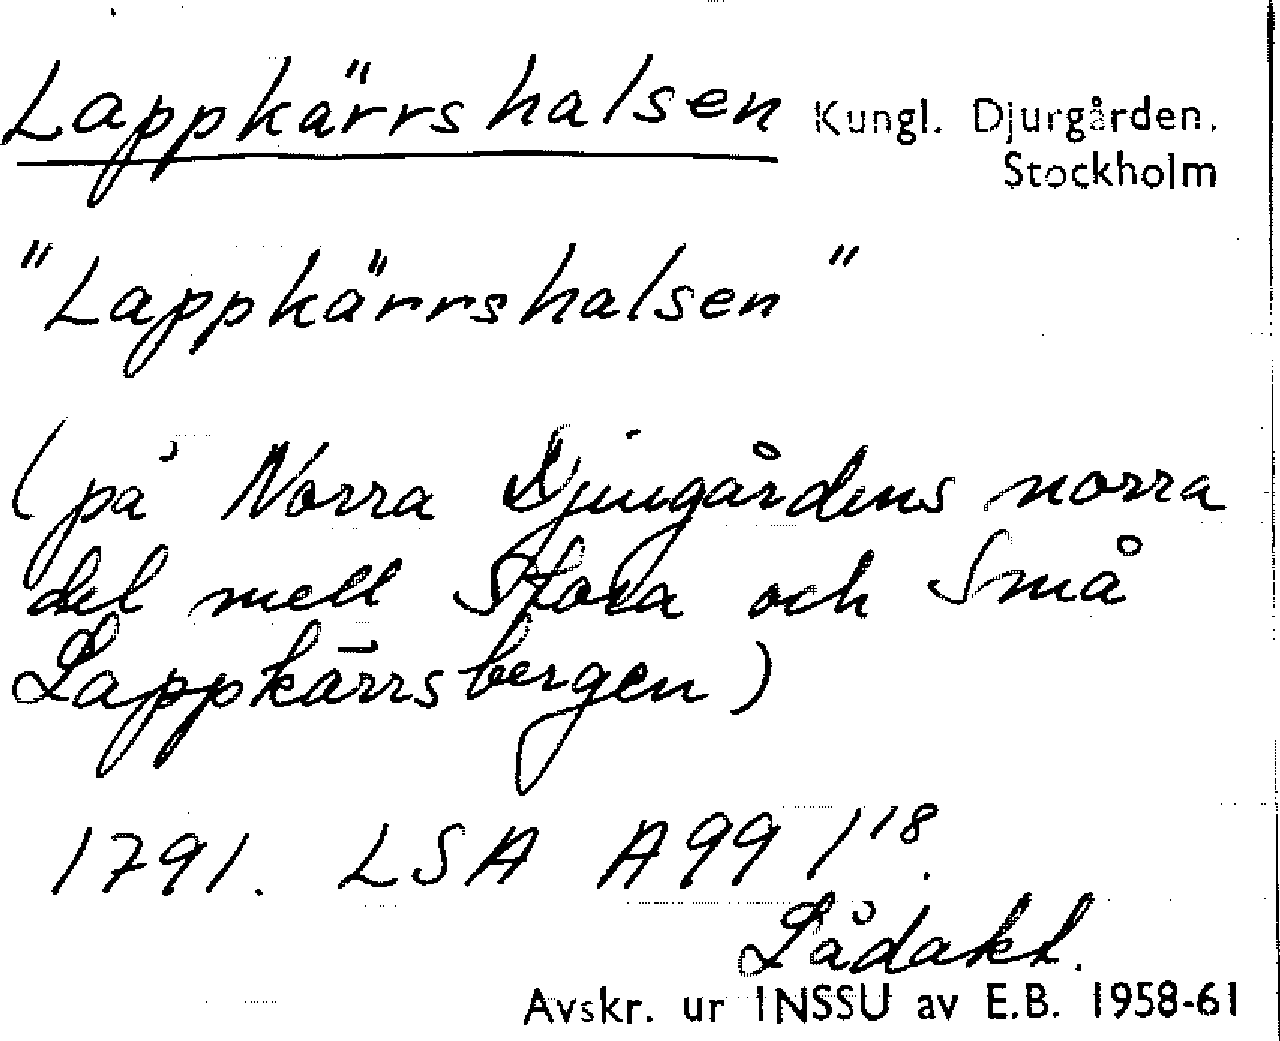 Lappkärrshalsen Kungl. Djurgården.
Stockholm
"Lappkärrshalsen"
(på Norra Djurgårdens norra
del mell Stora och Små
Lappkärrsbergen)
1791. LSA A99 1¹⁸.
Lådakt.
Avskr. ur INSSU av E.B. 1958-61